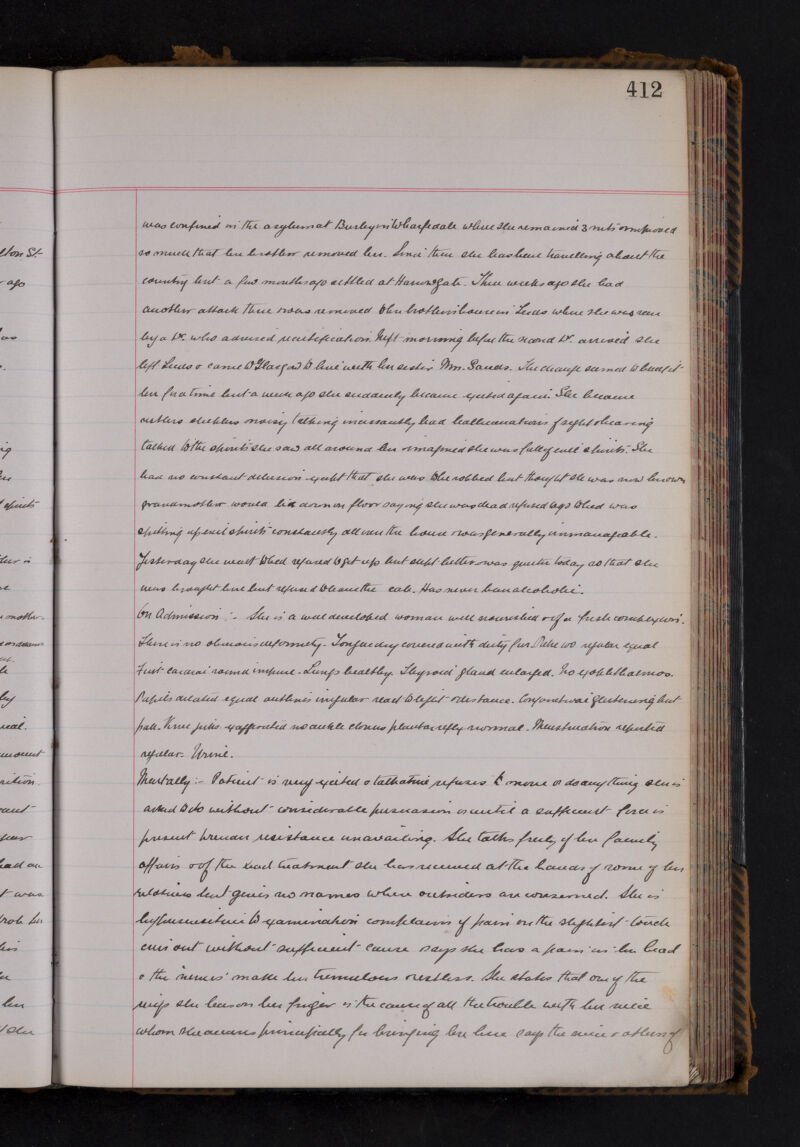 412
was confined in the asylum at Burley in Wharfedale where she remained 3 mts & improved
so much that her brother removed her. Since then she has been travelling about the
country but a few months ago settled at Harrogate. Three weeks ago she had
another attack there & was removed to her brother's house in Leeds where she was seen
by a Dr. who advised recertification. Next morning before the second Dr. arrived she
left Leeds & came to Glasgow to live with her sister Mrs. Sands. The change seemed to benefit
her for a time but a week ago she suddenly became excited again. She became
restless sleepless noisy talking incessantly had hallucinations of sight & hearing
talked to the spirits she saw all around her imagined she was full of evil spirits. She
had no constant delusion except that she was to be robbed but thought she was now her own
grandmother would lie down on floor saying she was dead refused to go to bed was
spitting up evil spirits constantly all over the house & was generally unmanageable.
Yesterday she went to bed refused to get up but slept better & was quieter today so that she
was brought here but refused to leave the cab. Has never been alcoholic.
On Admission :- She is a well developed woman well nourished & of a fresh complexion.
There is no obvious deformity. Tongue dry covered with dirty fur. Pulse 100 regular equal
First cardiac sound impure. Lungs healthy. Thyroid gland enlarged. No exophthalmos.
Pupils dilated equal outlines irregular react to light & distance. Conjunctivae glistening but
pale. Knee jerks exaggerated no ankle clonus plantar reflex normal. Menstruation reported
regular. Urine.
Mentally :- Patient is very excited & talkative refuses to move or do anything she is
asked to do without considerable persuasion or until a sufficient force is
present to render resistance unavailing. She talks freely of her family
affairs & of the bad treatment she has received at the hands of some of her
relatives but gives no names where outsiders are concerned. She is
hypersensitive to examination complains of pain on the slightest touch
cries out without sufficient cause says she has a pain in her head
& the nerves make her tremulous & restless. She states that one of the
rings she has on her finger is the cause of all the trouble with her niece
whom she accuses principally for bringing her here says the niece & others of